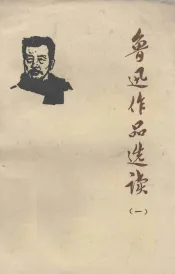 鲁迅作品选读
（一）